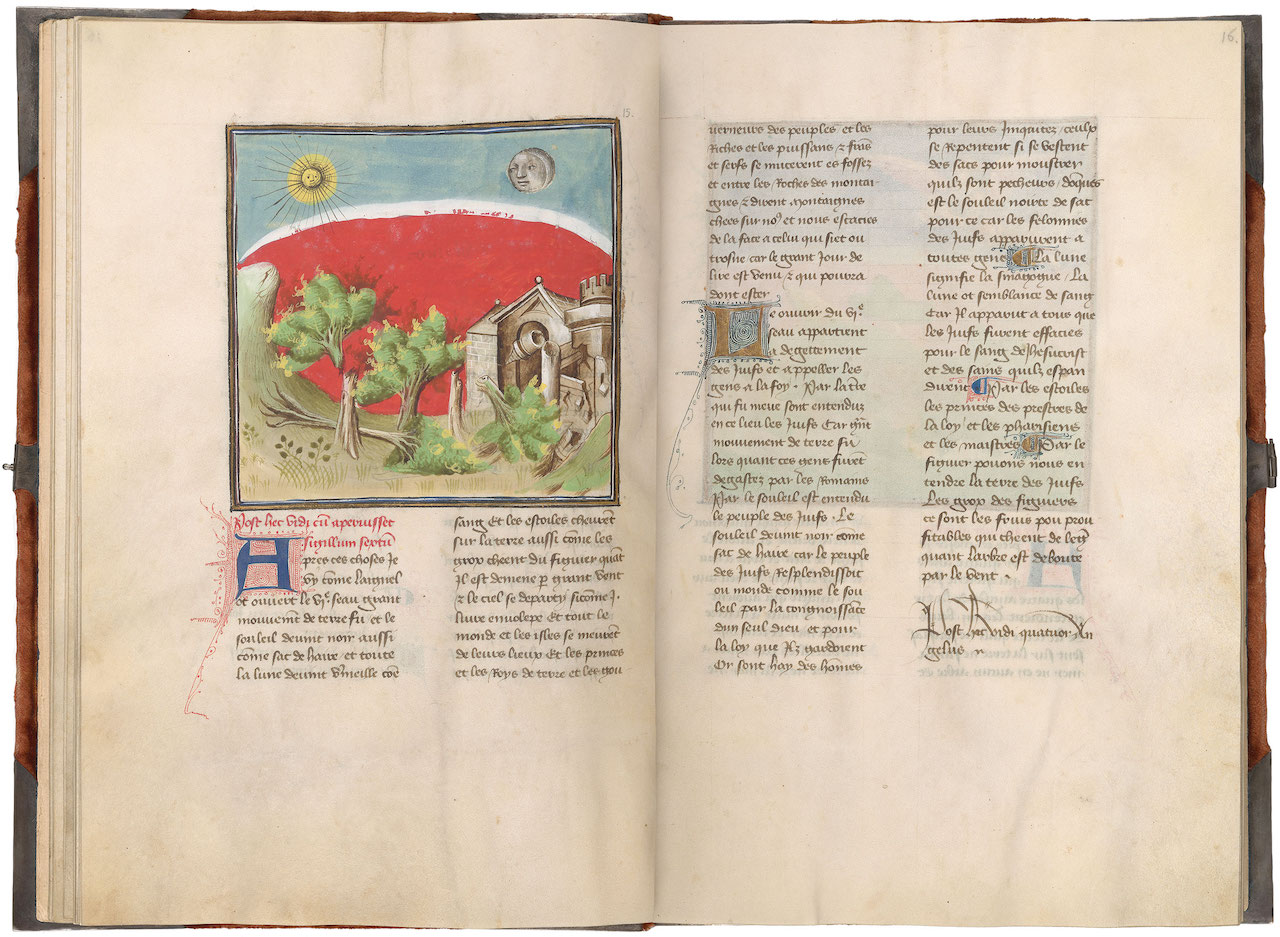 15.
Post hec vidi cū aperuisset
sigillum sextū
Apres ces choses Je
vy cōme laignel
ot ouvert le VIᵉ seau grant
mouvemēt de terre fu et le
souleil devint noir aussi
cōme sac de haire et toute
la lune devint v̄meille cōe
sang Et les estoiles cheurēt
sur la terre aussi cōme les
grox cheent du figuier quāt
Il est demene p̲ grant vent
⁊ le ciel se departy sicōme j.
livre envelope Et tout le
monde et les isles se meurēt
de leurs lieux Et les princes
et les Roys de terre et les gou
16.
verneurs des peuples et les
Riches et les puissans ⁊ frās
et serfs se mucerent es fossez
et entre les Roches des montai
gnes ⁊ dirent Montaignes
chees sur noꝰ et nous estacies
de la face a celui qui siet ou
trosne car le grant Jour de
lire est venu ⁊ qui pourra
dont ester
Le ouvrir du VIᵉ
seau appartient
a degettement
des Juifs et appeller les
gens a la foy . Par la t̄re
qui fu meue sont entenduz
en ce lieu les Juifs Car grāt
mouvement de terre fu
lors quant ces gens furēt
degastez par les Romains
Par le souleil est entendu
le peuple des Juifs . Le
souleil devint noir come
sac de haire car le peuple
des Juifs Resplendissoit
ou monde comme le sou
leil par la congnoissāce
dun seul dieu et pour
la loy que Ilz gardoient
Or sont hay des hōmes
pour leurs Iniquitez / ceulx
se Repentent si se vestent
des sacs pour monstrer
quilz sont pecheurs / dōques
est le souleil noir de sac
pour ce car les felonnies
des Juifs apparurent a
toutes gens La lune
signifie la sinagogue / La
lune ot semblance de sang
Car Il apparut a tous que
les Juifs furent effacies
pour le sang de Jhesucrist
et des sains quilz espan
dirent Par les estoiles
les princes des prestres de
la loy / et les pharisiens
et les maistres Par le
figuier pouons nous en
tendre la terre des Juifs
Les grox des figuiers
ce sont les fruis pou prou
fitables qui cheent de leg̅
quant larbre est deboute
par le vent .
Post hec vidi quatuor An
gelus